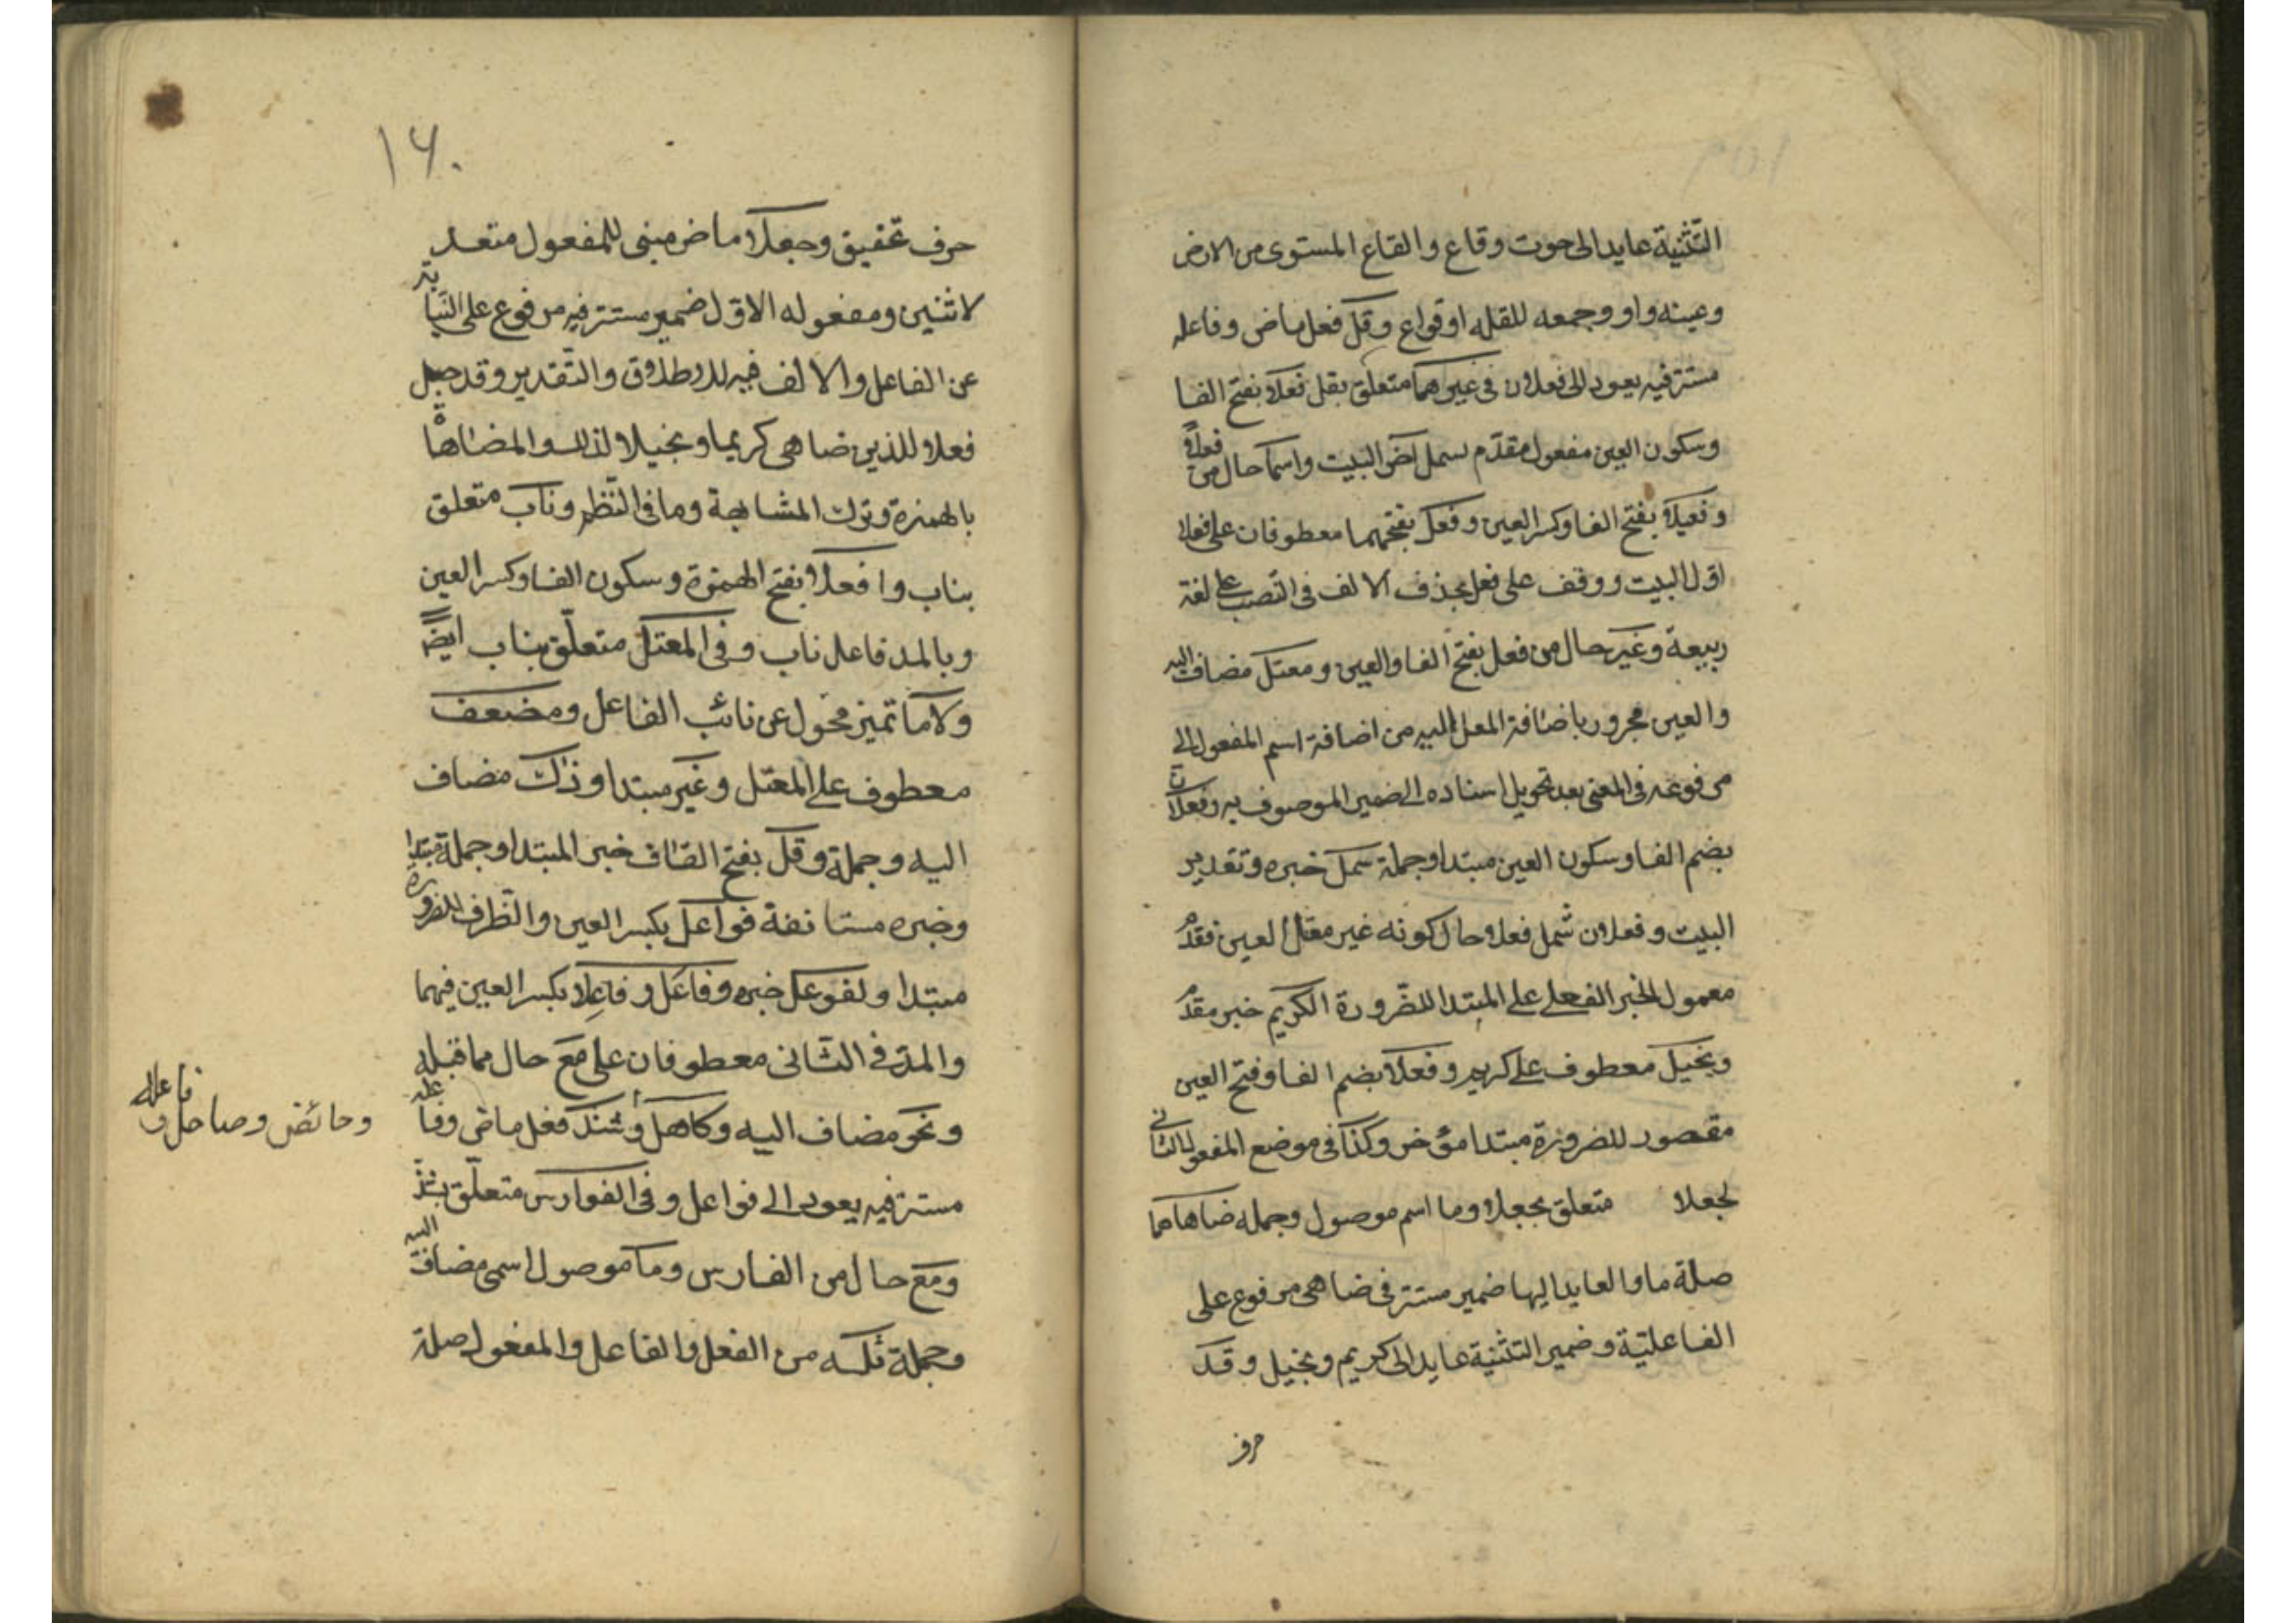 التّثنية عايد الى حوت وقاع والقاع المستوى من الارض
وعينه واو وجمعه للقله اوقواع وقلّ فعل ماض وفاعله
مستتر فيه يعود الى فعلان فى غيرهما متعلق بقل فعلا بفتح الفا
وسكون العين مفعول مقدّم لشمل آخر البيت واسما حال من فعلا
وفعيلا بفتح الفا وكسر العين وفعل بفتحهما معطوفان على فعلا
اوّل البيت ووقف على فعل بحذف الالف فى النّصب على لغة
ربيعة وغير حال من فعل بفتح الفا والعين ومعتل مضاف اليه
والعين مجرور باضافة المعل اليه من اضافة اسم المفعول الى
مرفوعه فى المعنى بعد تحويل اسناده الى ضمير الموصوف به وفعلان
بضم الفا وسكون العين مبتدا وجملة شمل خبره وتقدير
البيت وفعلان شمل فعلا حال كونه غير معل العين فقدّم
معمول الخبر الفعلى على المبتدا للضّرورة الكريم خبر مقدّم
وبخيل معطوف على كريم وفعلا بضم الفا وفتح العين
مقصور للضرورة مبتدا مؤخر وكذا فى موضع المفعول الثانى
لجعلا متعلق بجعلا وما اسم موصول وجمله ضاهاهما
صلة ما والعايد اليها ضمير مستتر فى ضاهى مرفوع على
الفاعليّة وضمير التثنية عايد الى كريم وبخيل وقد
حرف
١٦٠
حرف تحقيق وجعلا ماض مبنى للمفعول متعد
لاثنين ومفعوله الاوّل ضمير مستتر فيه مرفوع على النّيابة
عن الفاعل والالف فيه للاطلاق والتّقدير وقد جعل
فعلا للذين ضاهى كريما وبخيلا لذلك والمضاهاة
بالهمزة وترك المشابهة وما فى النّظم وناب متعلق
بناب وافعلا بفتح الهمزة وسكون الفا وكسر العين
وبالمد فاعل ناب وفى المعتلّ متعلّق بناب ايضا
ولاما تميز محوّل عن نائب الفاعل ومضعف
معطوف على المعتل وغير مبتدا وذاك مضاف
اليه وجملة وقلّ بفتح القاف خبر المبتدا وجملة مبتدا
وخبره مستانفة فواعل بكسر العين والظرف للضرورة
مبتدا ولفوعل خبره وفاعل وفاعلا بكسر العين فيهما
والمدّ فى الثّانى معطوفان على مع حال مما قبله
ونحو مضاف اليه وكاهل وشذ فعل ماض وفاعله
وحائض وصاهل وفاعله
مستتر فيه يعود الى فواعل وفى الفوارس متعلّق بشذّ
ومع حال من الفارس وما موصول اسمى مضاف اليه
وجملة ماثله من الفعل والفاعل والمفعول صلة